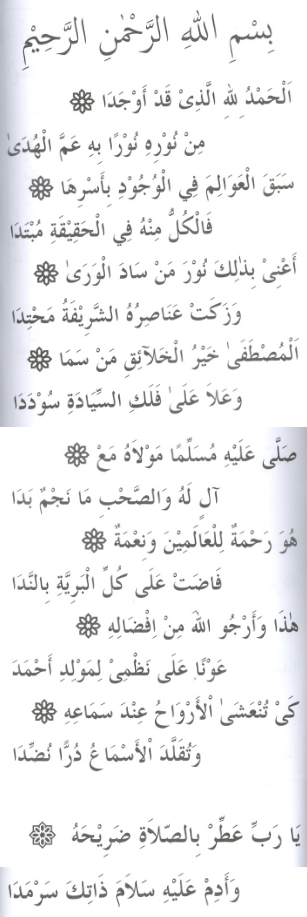 بِسْمِ اللهِ الرَّحْمٰنِ الرَّحِيْمِ
اَلْحَمْدُ لِلّٰهِ الَّذِىْ قَدْ أَوْجَدَا ۞
مِنْ نُوْرِهِ نُوْرًا بِهِ عَمَّ الْهُدَىٰ
سَبَقَ الْعَوَالِمَ فِي الْوُجُوْدِ بِأَسْرِهَا ۞
فَالْكُلُّ مِنْهُ فِي الْحَقِيْقَةِ مُبْتَدَا
أَعْنِىْ بِذٰلِكَ نُوْرَ مَنْ سَادَ الْوَرَىٰ ۞
وَزَكَتْ عَنَاصِرُهُ الشَّرِيْفَةُ مَحْتِدَا
اَلْمُصْطَفَىٰ خَيْرُ الْخَلَآئِقِ مَنْ سَمَا ۞
وَعَلَا عَلَىٰ فَلَكِ السِّيَادَةِ سُوْدَدَا
صَلَّى عَلَيْهِ مُسَلِّمًا مَوْلَاهُ مَعْ ۞
آلٍ لَهُ وَالصَّحْبِ مَا نَجْمٌ بَدَا
هُوَ رَحْمَةٌ لِلْعَالَمِيْنَ وَنِعْمَةٌ ۞
فَاضَتْ عَلَى كُلِّ الْبَرِيَّةِ بِالنَّدَا
هٰذَا وَأَرْجُو اللهَ مِنْ اِفْضَالِهِ ۞
عَوْنًا عَلَى نَظْمِىْ لِمَوْلِدِ أَحْمَدَ
كَىْ تُنْعَشَىٰ الْأَرْوَاحُ عِنْدَ سَمَاعِهِ ۞
وَتُقَلَّدَ الْأَسْمَاعُ دُرًّا نُضِّدَا
يَا رَبِّ عَطِّرْ بِالصَّلَاةِ ضَرِيْحَهُ ۞
وَأَدِمْ عَلَيْهِ سَلَامَ ذَاتِكَ سَرْمَدَا